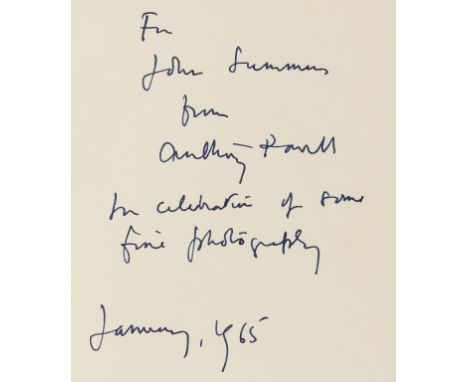 For
John Summers
from
Anthony Powell
In celebration of some
fine photography
January, 1965